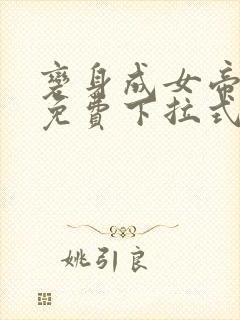 变身成女帝
免費下拉式
姚引良